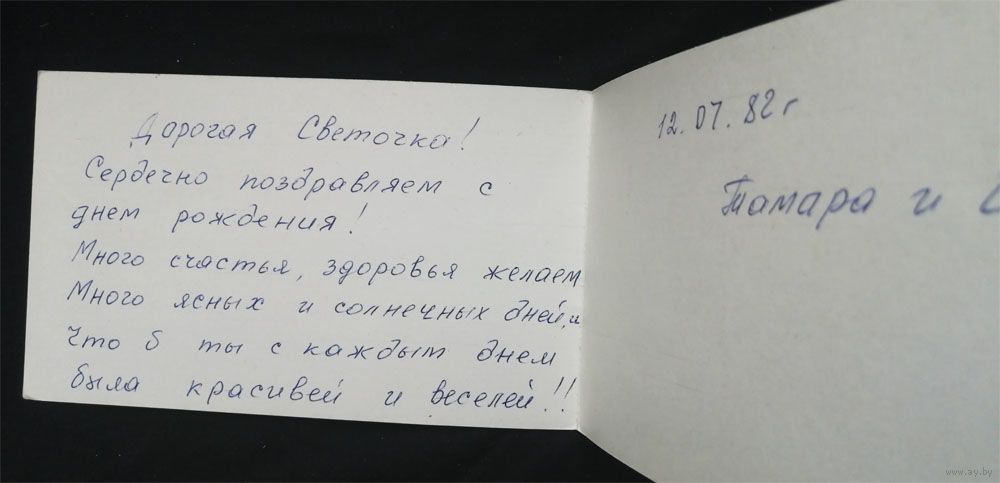 Дарогая Светочка!
Сердечно поздравляем с
днем рождения!
Много счастья, здоровья желаем
Много ясных и солнечных дней, и
Что б ты с каждым днем
была красивей и веселей!!
12.07.82 г
Тамара и
www.ay.by